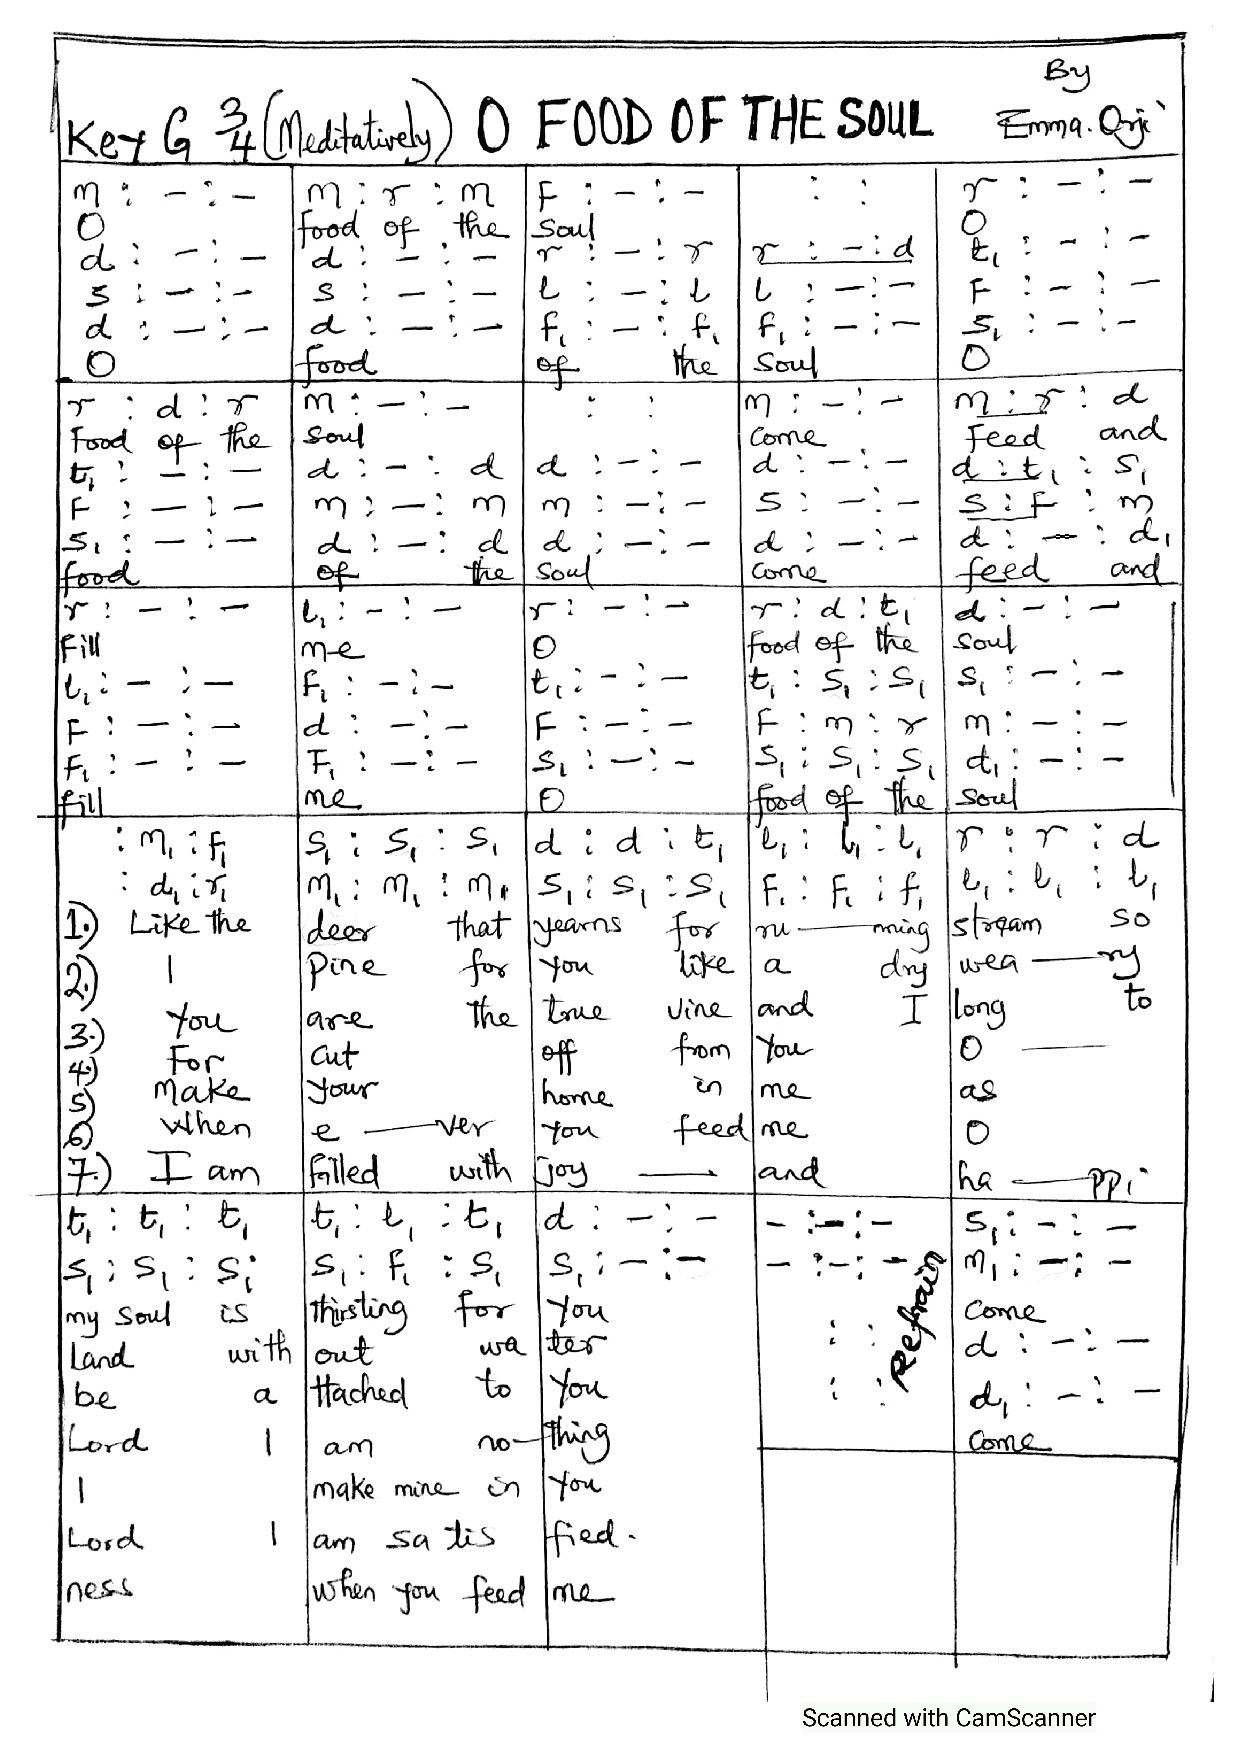 By
Key G 3/4 (Meditatively) O FOOD OF THE SOUL Emma. Orji
m : – : – m : r : m F : – : – : : r : – : –
O food of the soul O
d : – : – d : – : – r : – : r r : – : d t₁ : – : –
s : – : – s : – : – l : – : l l : – : – F : – : –
d : – : – d : – : – f₁ : – : f₁ f₁ : – : – s₁ : – : –
O food of the soul O
r : d : r m : – : – : : m : – : – m : r : d
food of the soul come feed and
t₁ : – : – d : – : d d : – : – d : – : – d : t₁ : s₁
F : – : – m : – : m m : – : – s : – : – s : f : m
s₁ : – : – d : – : d d : – : – d : – : – d : – : d₁
food of the soul come feed and
r : – : – l₁ : – : – r : – : – r : d : t₁ d : – : –
Fill me O food of the soul
l₁ : – : – F₁ : – : – t₁ : – : – t₁ : s₁ : s₁ s₁ : – : –
F : – : – d : – : – F : – : – F : m : r m : – : –
F₁ : – : – F₁ : – : – s₁ : – : – s₁ : s₁ : s₁ d₁ : – : –
fill me O food of the soul
: m₁ : f₁ s₁ : s₁ : s₁ d : d : t₁ l₁ : l₁ : l₁ r : r : d
: d₁ : r₁ m₁ : m₁ : m₁ s₁ : s₁ : s₁ F₁ : F₁ : f₁ l₁ : l₁ : l₁
1.) Like the deer that yearns for ru — nning stream so
2.) I pine for you like a dry wea — ry
3.) You are the true vine and I long to
4.) For cut off from you O —
5.) make your home in me as
6.) when e — ver you feed me O
7.) I am filled with joy — and ha — ppi
t₁ : t₁ : t₁ t₁ : l₁ : t₁ d : – : – – : – : – s₁ : – : –
s₁ : s₁ : s₁ s₁ : f₁ : s₁ s₁ : – : – – : – : – m₁ : – : –
Refrain
my soul is thirsting for you come
land with out wa ter : : d : – : –
be a ttached to you : : d₁ : – : –
Lord I am no – thing come
I make mine in you
Lord I am sa tis fied.
ness when you feed me
Scanned with CamScanner